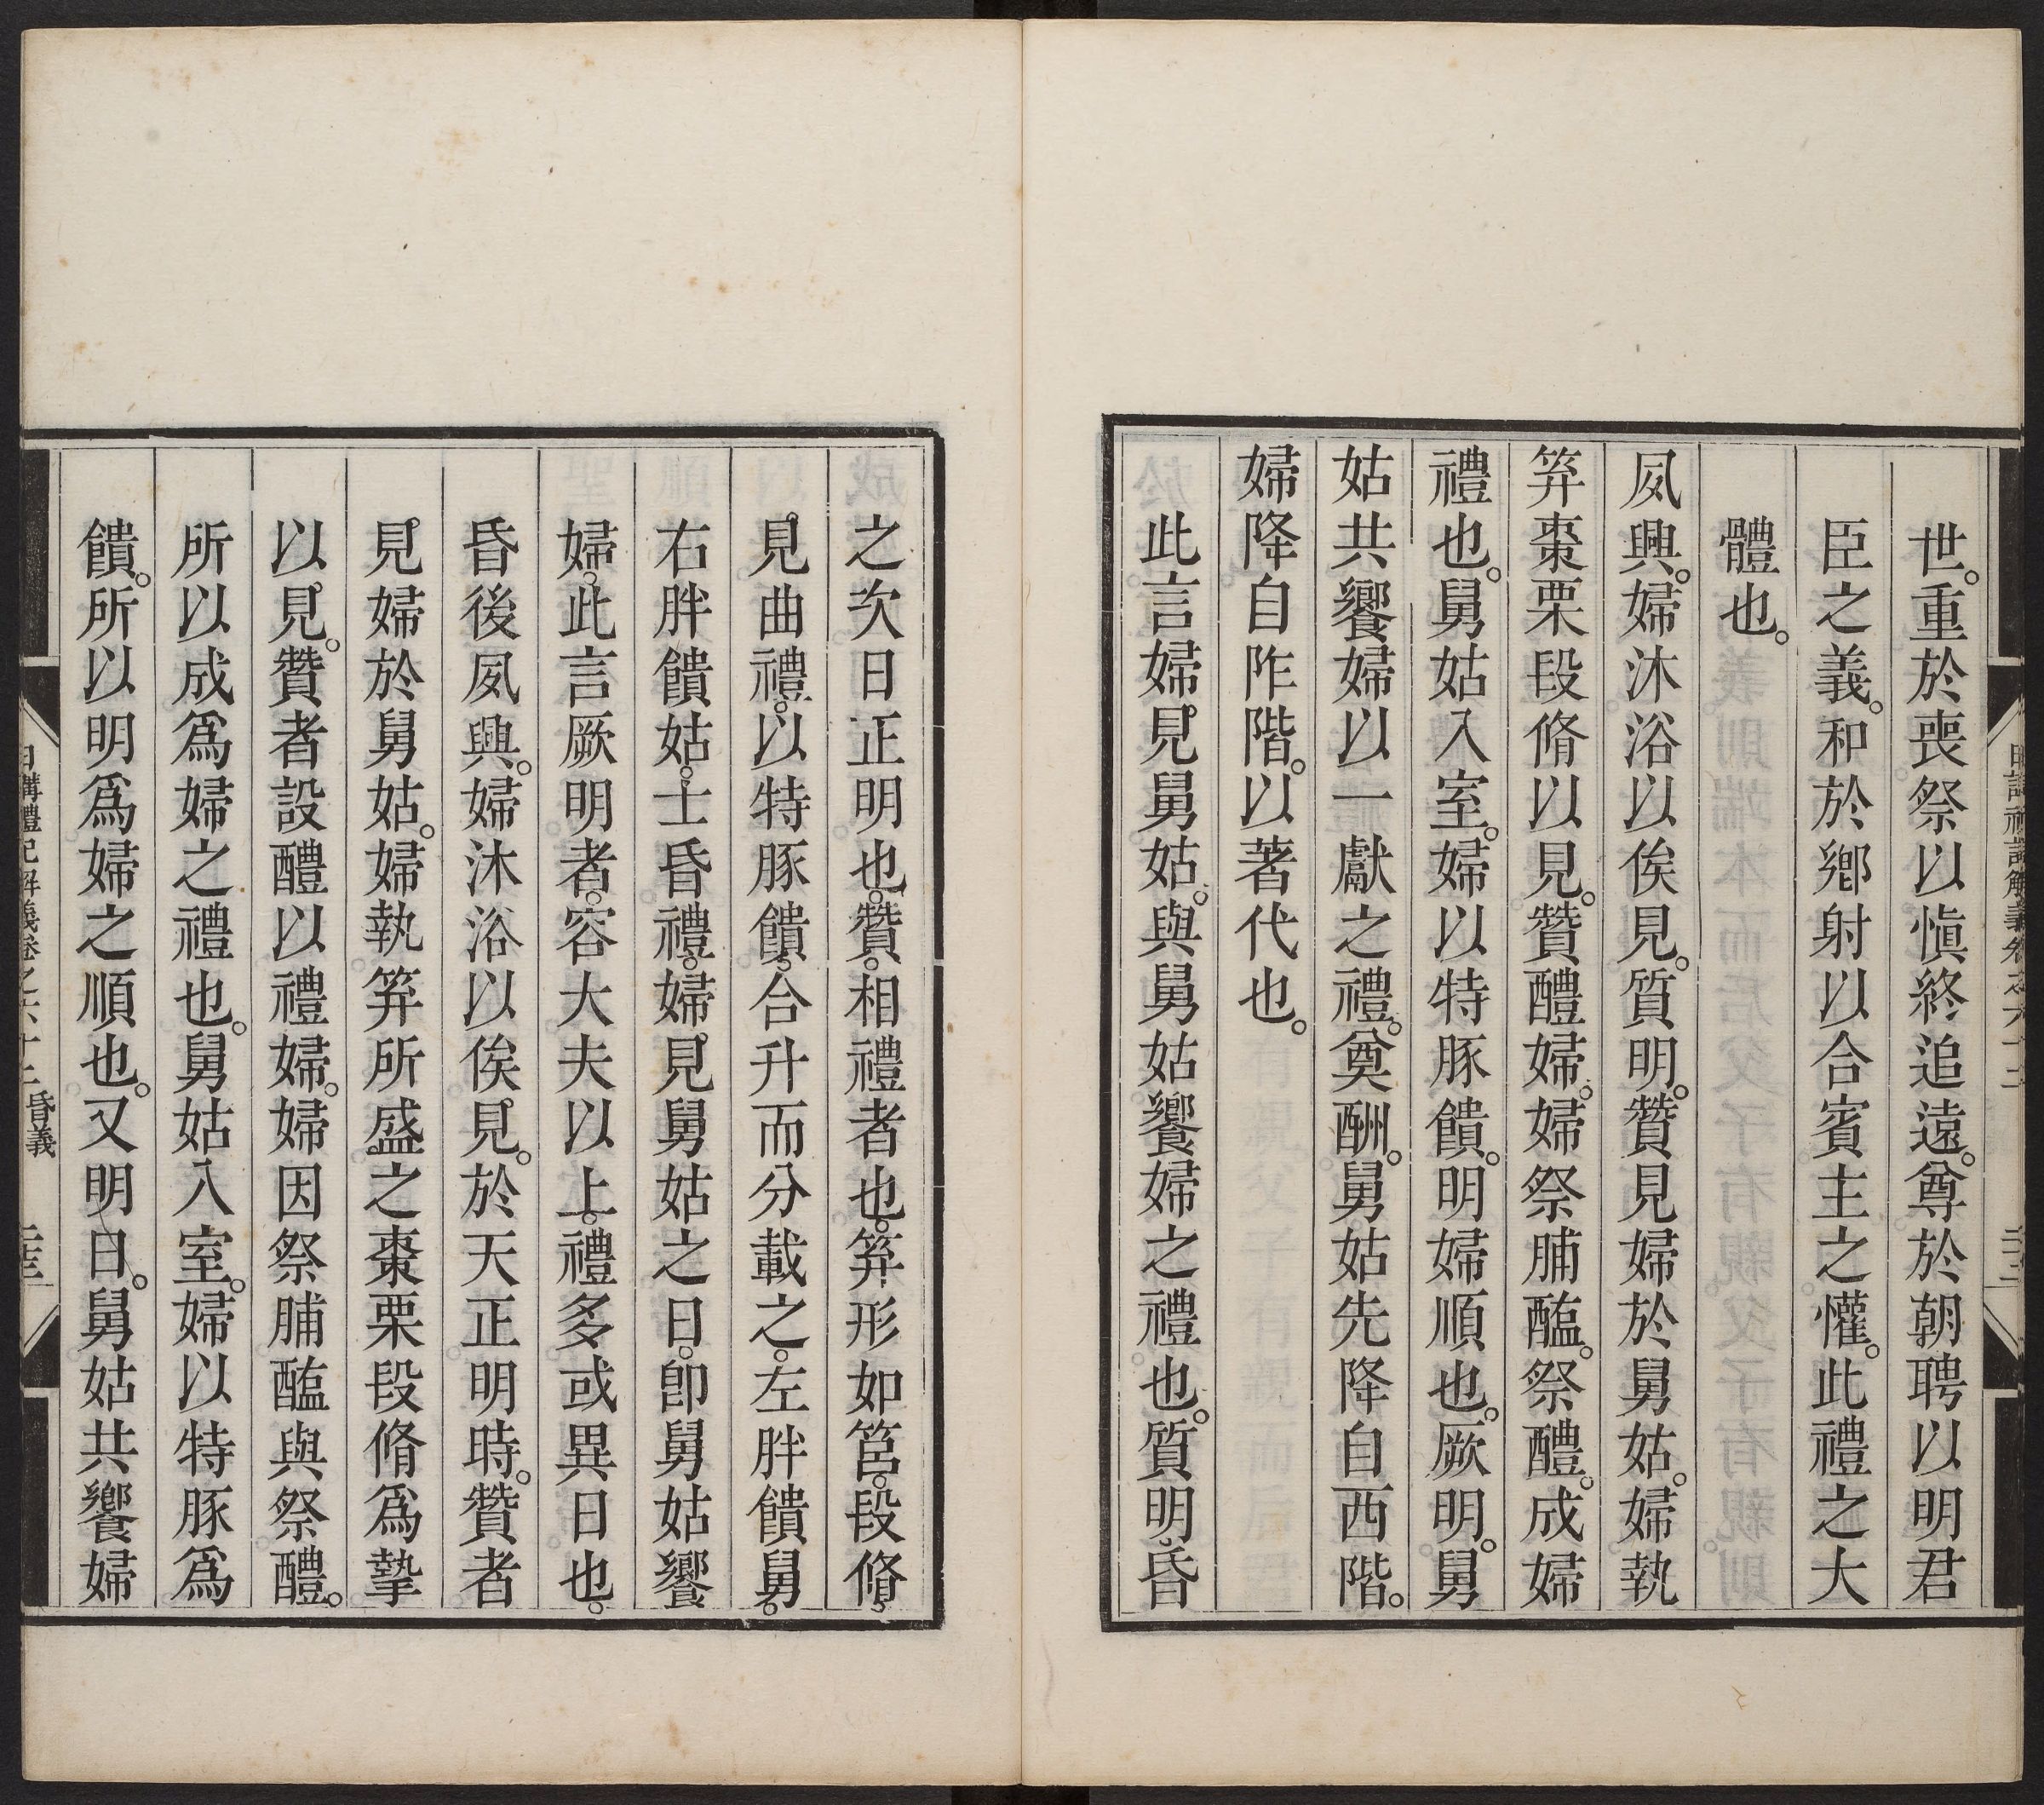 世。重於喪祭以愼終追遠。尊於朝聘以明君
臣之義。和於鄉射以合賓主之懽。此禮之大
體也。
夙興。婦沐浴以俟見。質明。贊見婦於舅姑。婦執
笲棗栗段脩以見。贊醴婦。婦祭脯醢。祭醴。成婦
禮也。舅姑入室。婦以特豚饋。明婦順也。厥明。舅
姑共饗婦以一獻之禮。奠酬。舅姑先降自西階。
婦降自阼階。以著代也。
此言婦見舅姑。與舅姑饗婦之禮也。質明、昏
之次日正明也。贊。相禮者也。笲形如筥。段脩、
見曲禮。以特豚饋、合升而分載之。左胖饋舅。
右胖饋姑。士昏禮。婦見舅姑之日。卽舅姑饗
婦。此言厥明者。容大夫以上。禮多或異日也。
昏後夙興。婦沐浴以俟見。於天正明時。贊者
見婦於舅姑。婦執笲所盛之棗栗段脩爲摯
以見。贊者設醴以禮婦。婦因祭脯醢與祭醴。
所以成爲婦之禮也。舅姑入室。婦以特豚爲
饋。所以明爲婦之順也。又明日。舅姑共饗婦
日講禮記解義卷之六十二 昏義